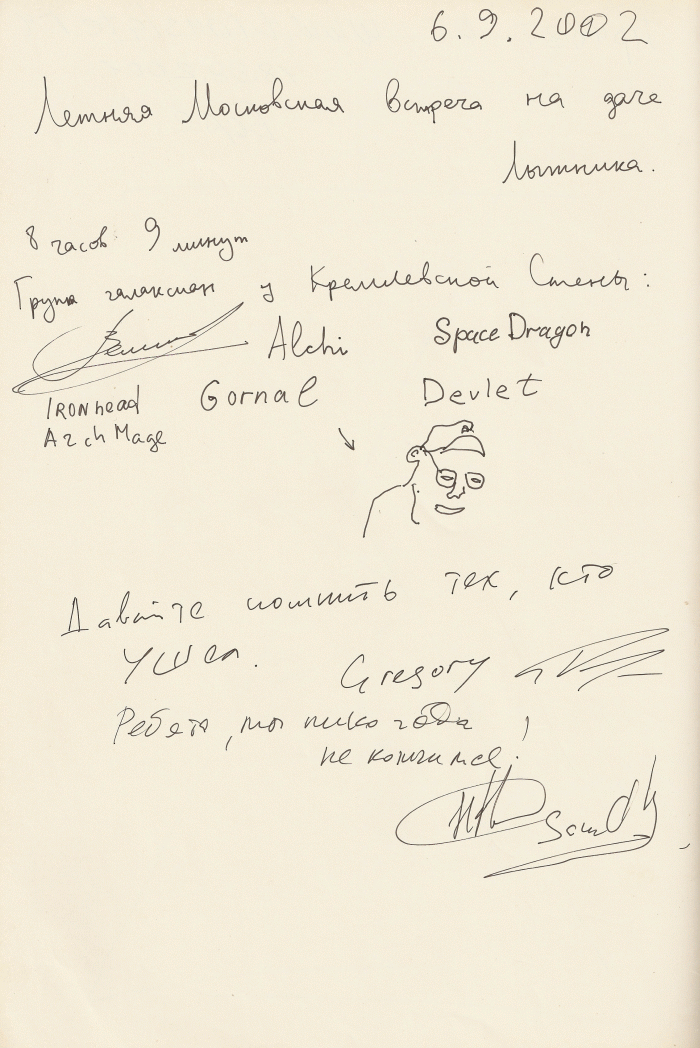 6.9.2002
Летняя Московская встреча на даче
Лытника.
8 часов 9 минут
Група галаксиан у Кремлевской Стены:
Alchi Space Dragon
IRONhead Gornal Devlet
ArchMage
Давайте помнить тех, кто
ушел. Gregory
Ребята, мы никогда
не кончимся!
Sandy